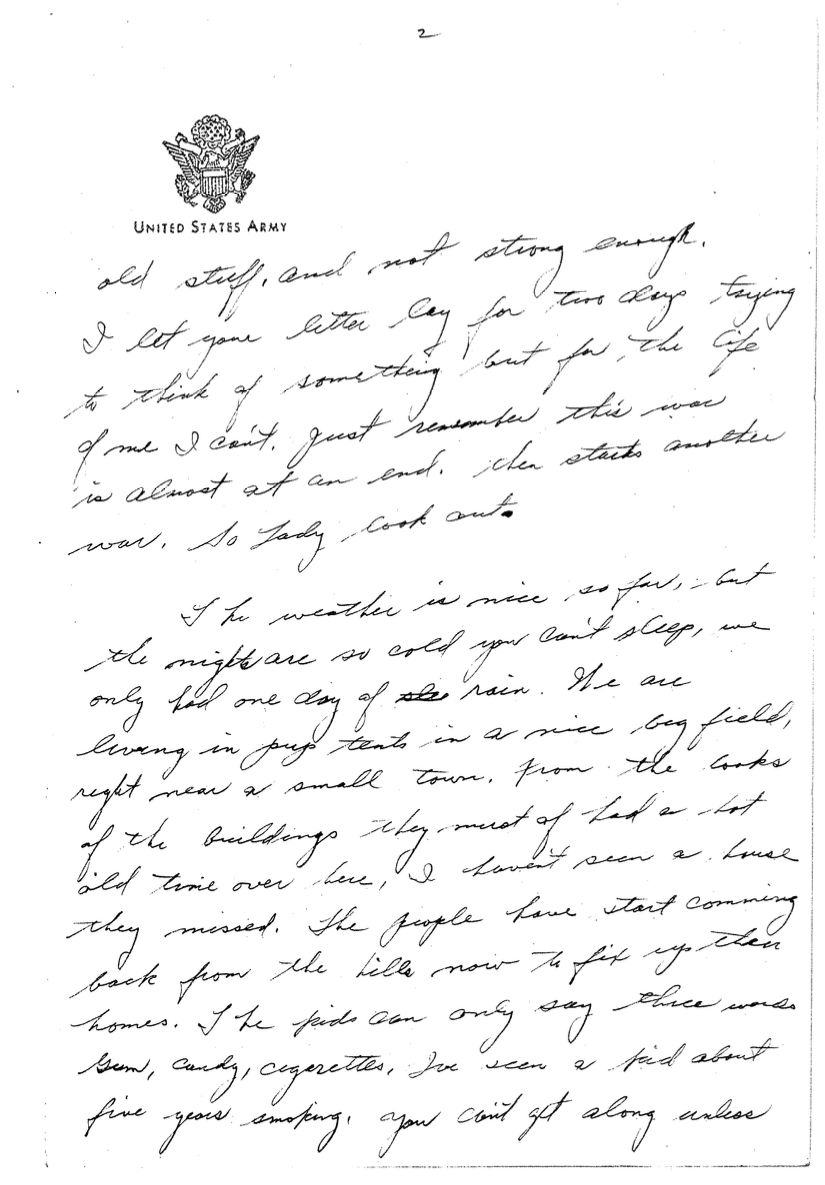 2
UNITED STATES ARMY
old stuff, and not strong enough.
I let your letter lay for two days trying
to think of something but for the life
of me I can't. Just remember this war
is almost at an end. then starts another
war. So Lady look out.
The weather is nice so far, but
the nights are so cold you can't sleep, we
only had one day of rain. We are
living in pup tents in a nice big field,
right near a small town. From the looks
of the buildings they must of had a hot
old time over here, I haven't seen a house
they missed. The people have start comming
back from the hills now to fix up their
homes. The kids can only say three words
Gum, candy, cigarettes. I've seen a kid about
five years smoking. You can't get along unless